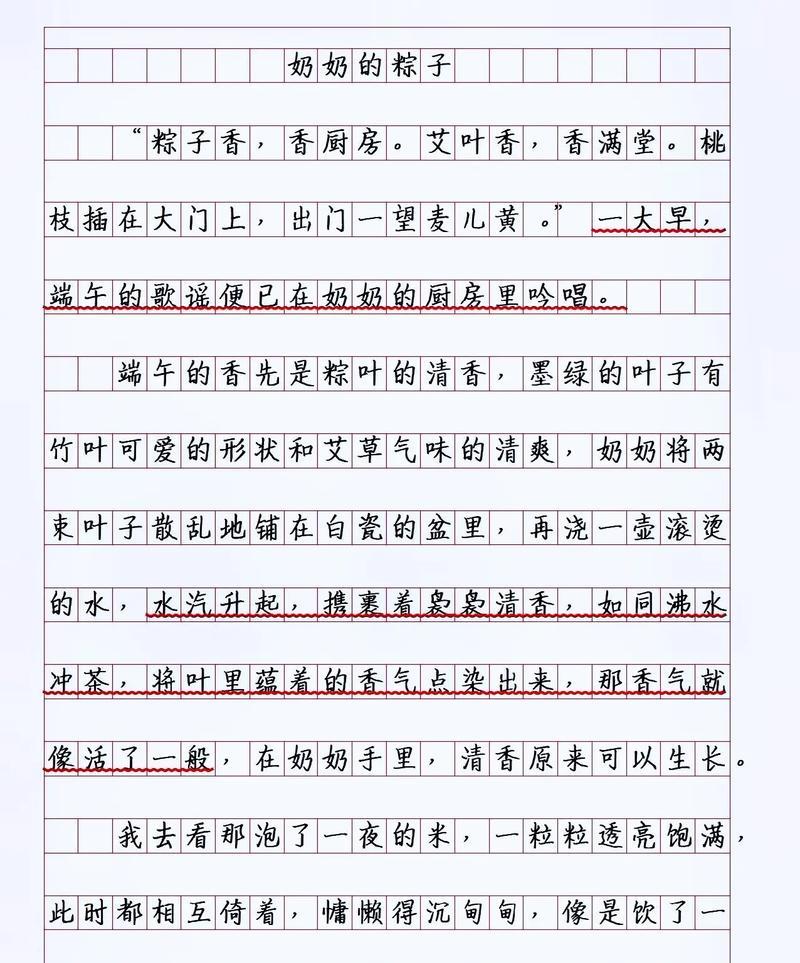 奶奶的粽子
“粽子香，香厨房。艾叶香，香满堂。桃
枝插在大门上，出门一望麦儿黄。”一大早，
端午的歌谣便已在奶奶的厨房里吟唱。
端午的香先是粽叶的清香，墨绿的叶子有
竹叶可爱的形状和艾草气味的清爽，奶奶将两
束叶子散乱地铺在白瓷的盆里，再浇一壶滚烫
的水，水汽升起，携裹着袅袅清香，如同沸水
冲茶，将叶里蕴着的香气点染出来，那香气就
像活了一般，在奶奶手里，清香原来可以生长。
我去看那泡了一夜的米，一粒粒透亮饱满，
此时都相互倚着，慵懒得沉甸甸，像是饮了一